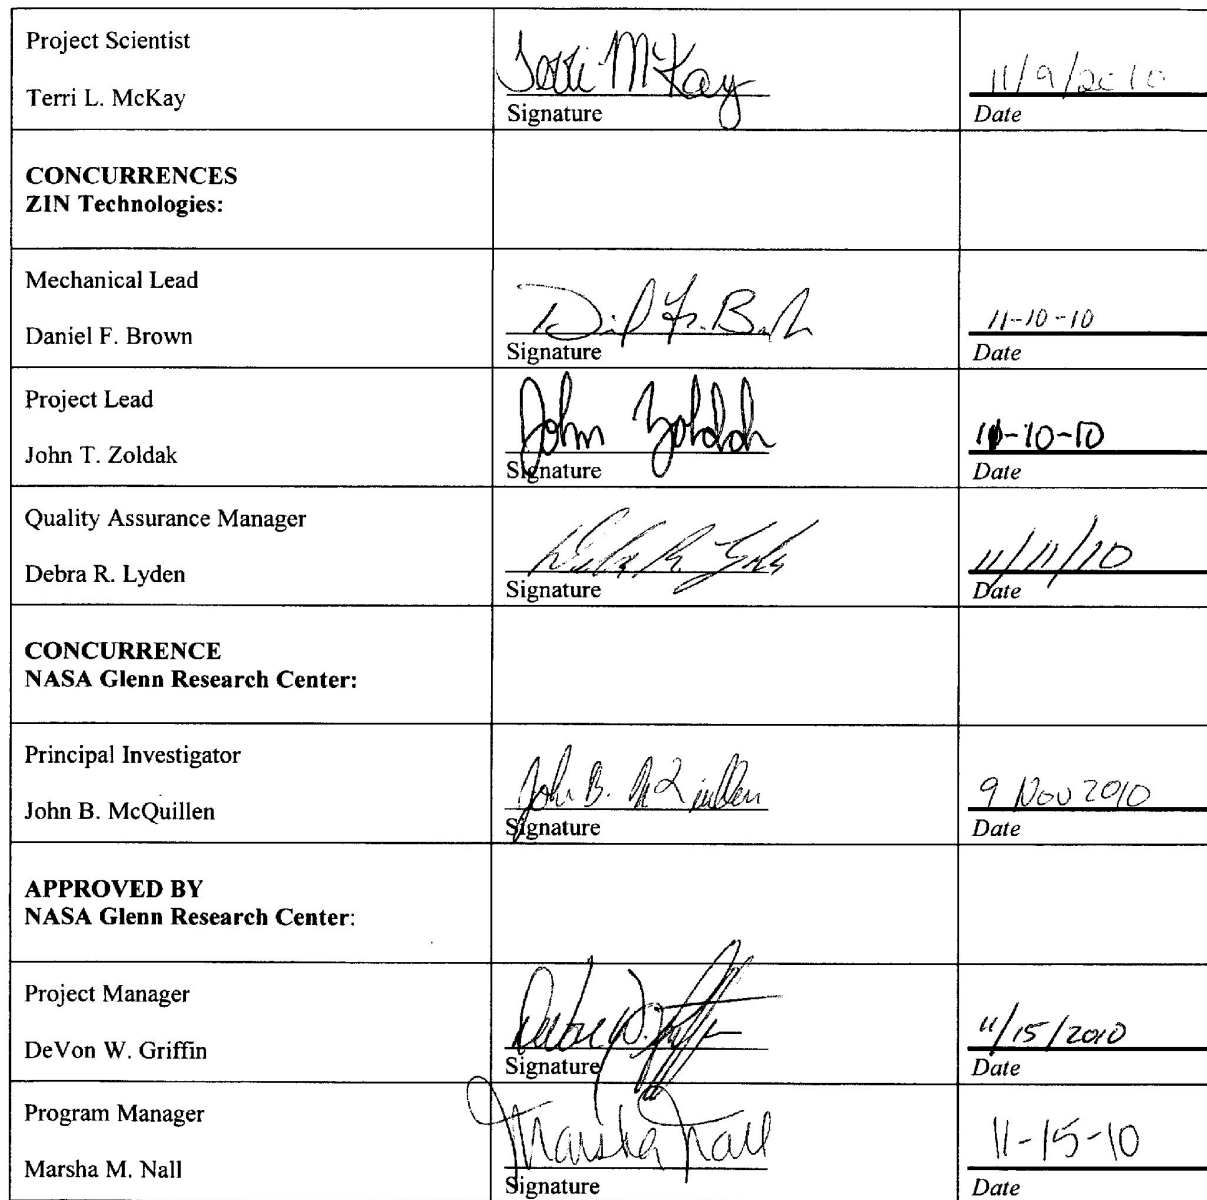 Project Scientist
Terri L. McKay
Terri McKay
Signature
11/9/2010
Date
CONCURRENCES
ZIN Technologies:
Mechanical Lead
Daniel F. Brown
Signature
11-10-10
Date
Project Lead
John T. Zoldak
John Zoldak
Signature
11-10-10
Date
Quality Assurance Manager
Debra R. Lyden
Signature
11/11/10
Date
CONCURRENCE
NASA Glenn Research Center:
Principal Investigator
John B. McQuillen
John B. McQuillen
Signature
9 Nov 2010
Date
APPROVED BY
NASA Glenn Research Center:
Project Manager
DeVon W. Griffin
Signature
11/15/2010
Date
Program Manager
Marsha M. Nall
Marsha Nall
Signature
11-15-10
Date